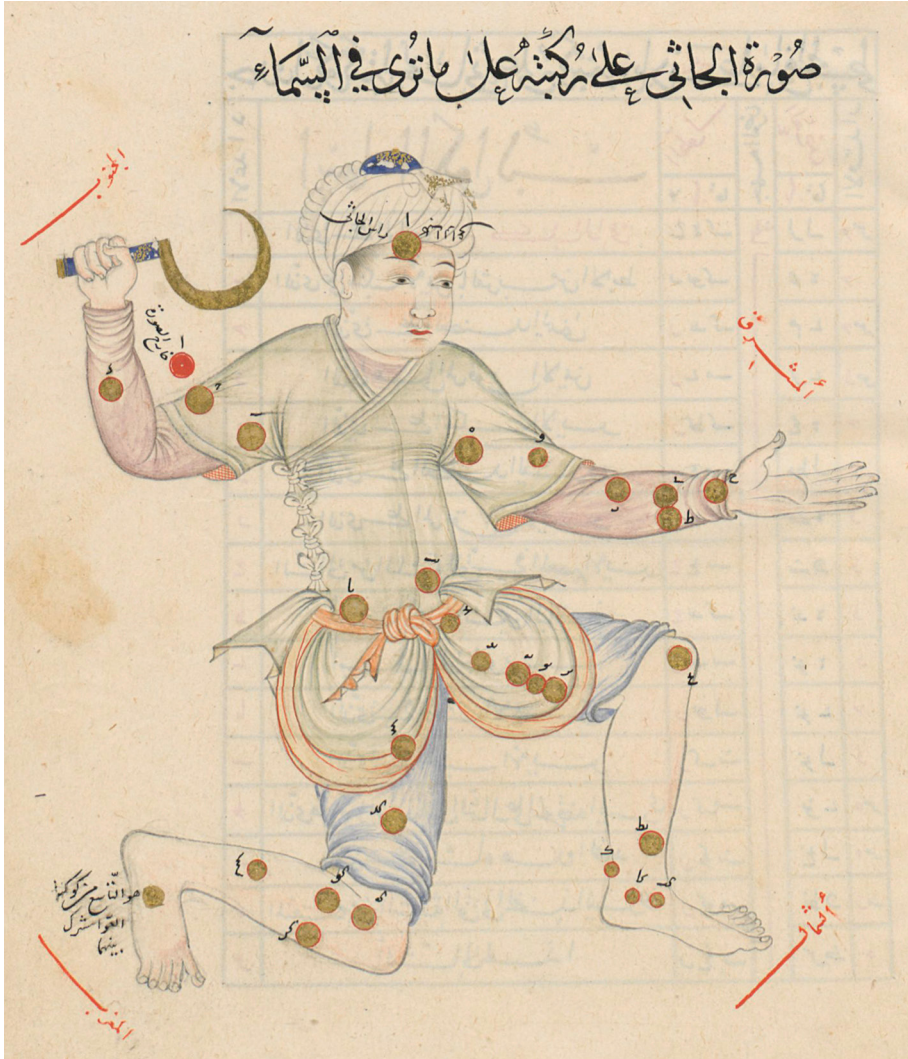 صُورَة الجاثِي عَلىٰ رُكبَتِه عَلىٰ ما تُرى فِي السَّمَاءِ
الجنوب
راس الجاثي
ا
خارج الصورة
ا
المشرق
د
ح
ب
ه
و
ر
ح
ط
يا
يب
ع
كد
يط
ك
كا
كب
كو
كه
هو التاسع من كوكبة
العوا مشترك
بينهما
الشمال
المغرب